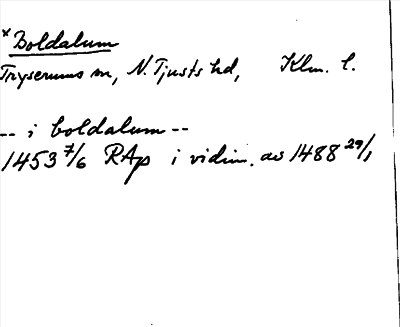 x Boldalum
Tryserums sn, N. Tjusts hd, Klm. l.
-- i boldalum --
1453 7/6 RAp i vidim. av 1488 29/1